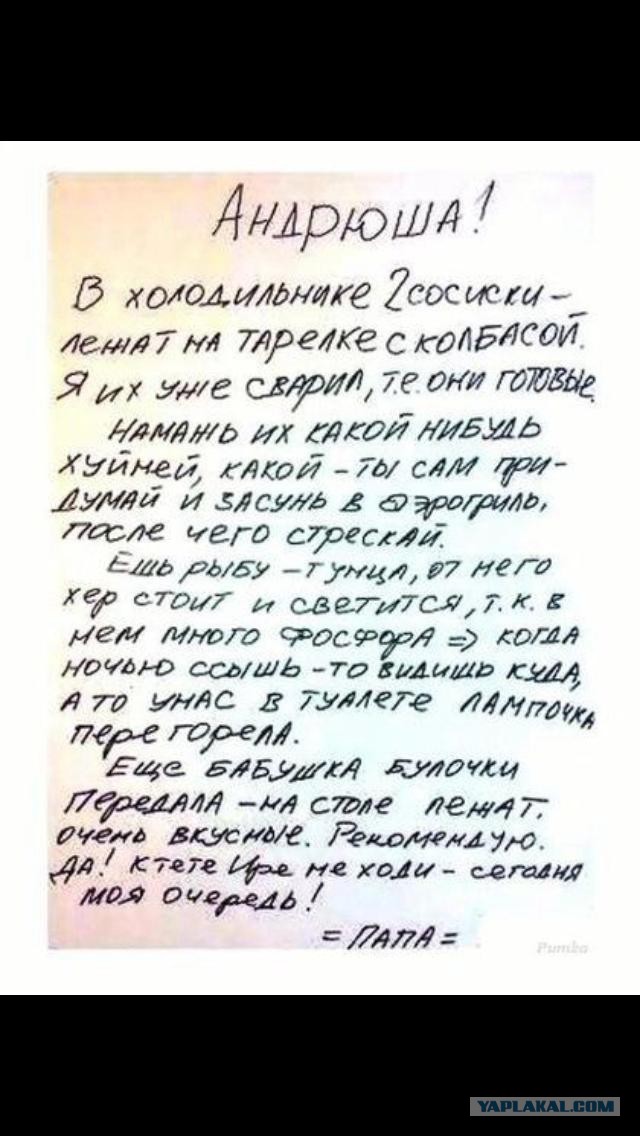 Андрюша!
В холодильнике 2 сосиски –
лежат на тарелке с колбасой.
Я их уже сварил, т.е. они готовые.
Намажь их какой нибудь
хуйней, какой – ты сам при-
думай и засунь в аэрогриль,
после чего стрескай.
Ешь рыбу – тунца, от него
хер стоит и светится, т.к. в
нем много фосфора => когда
ночью ссышь – то видишь куда,
а то у нас в туалете лампочка
перегорела.
Еще бабушка булочки
передала – на столе лежат.
очень вкусные. Рекомендую.
Да! К тете Ире не ходи – сегодня
моя очередь!
= Папа =
Pumba
YAPLAKAL.COM